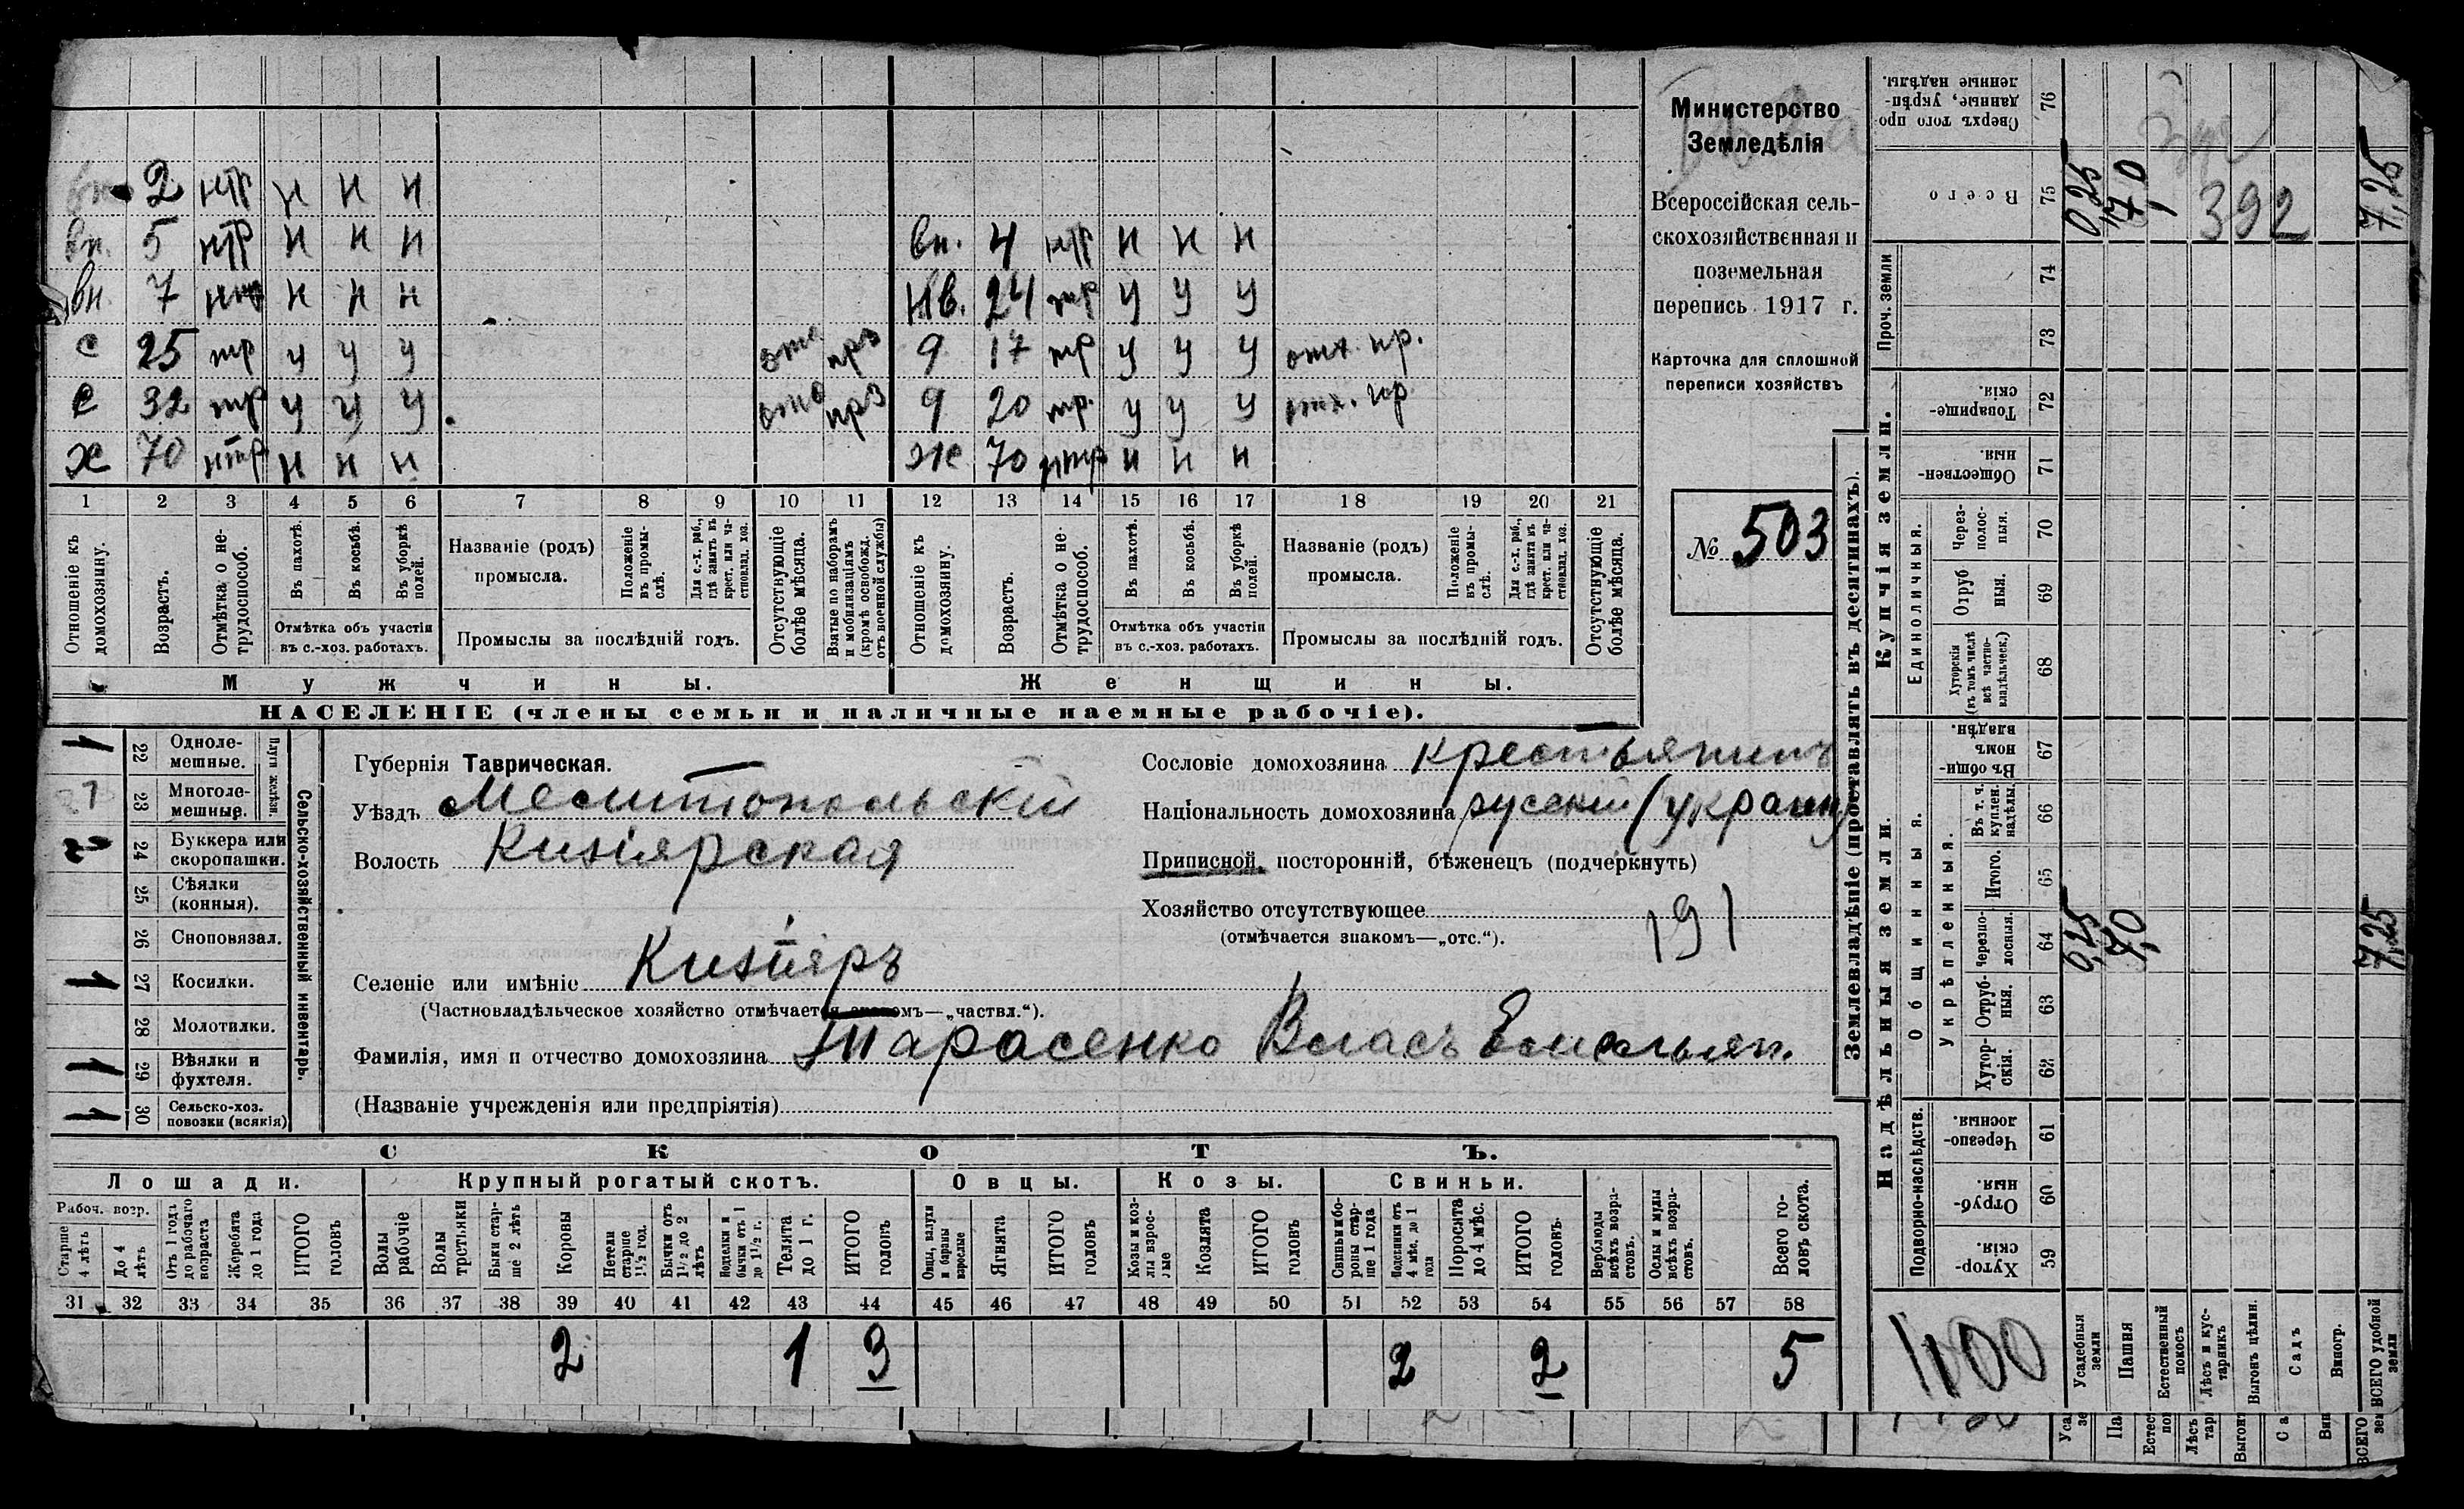 2 нтр н н н
вн. 5 нтр н н н вн. 4 нтр н н н
вн. 7 н н н нв. 24 тр у у у
с 25 тр у у у 9 17 тр у у у отх. пр.
с 32 тр у у у 9 20 тр. у у у
х 70 нтр н н н ж 70 нтр н н н
1 2 3 4 5 6 7 8 9 10 11 12 13 14 15 16 17 18 19 20 21
Отношеніе къ домохозяину.
Возрастъ.
Отмѣтка о не-трудоспособ.
Въ пахотѣ.
Въ косьбѣ.
Въ уборкѣ полей.
Отмѣтка объ участіи въ с.-хоз. работахъ.
Названіе (родъ) промысла.
Положеніе въ промы-слѣ.
Для с.-х. раб., гдѣ занятъ въ крест. или ча-стновлад. хоз.
Промыслы за послѣдній годъ.
Отсутствующіе болѣе мѣсяца.
Взятые по наборамъ и мобилизаціямъ (кромѣ освобожд. отъ военной службы)
Отношеніе къ домохозяину.
Возрастъ.
Отмѣтка о не-трудоспособ.
Въ пахотѣ.
Въ косьбѣ.
Въ уборкѣ полей.
Отмѣтка объ участіи въ с.-хоз. работахъ.
Названіе (родъ) промысла.
Положеніе въ промы-слѣ.
Для с.-х. раб., гдѣ заняти въ крест. или ча-стновлад. хоз.
Промыслы за послѣдній годъ.
Отсутствующіе болѣе мѣсяца.
Мужчины. Женщины.
НАСЕЛЕНІЕ (члены семьи и наличные наемные рабочіе).
Министерство
Земледѣлія
Всероссійская сель-
скохозяйственная и
поземельная
перепись 1917 г.
Карточка для сплошной
переписи хозяйствъ
№ 503
1 22 Одноле-мешные.
1 23 Многоле-мешные.
Плуги желѣзн.
2 24 Буккера или скоропашки.
25 Сѣялки (конныя).
26 Сноповязал.
1 27 Косилки.
28 Молотилки.
1 29 Вѣялки и фухтеля.
1 30 Сельско-хоз. повозки (всякія)
Сельско-хозяйственный инвентарь.
Губернія Таврическая.
Уѣздъ Мелитопольскій
Волость Кизіярская
Селеніе или имѣніе Кизіяръ
(Частновладѣльческое хозяйство отмѣчается знакомъ—„частвл.“).
Фамилія, имя и отчество домохозяина Тарасенко Власъ Емельян.
(Названіе учрежденія или предпріятія)
Сословіе домохозяина крестьянинъ
Національность домохозяина русскій (украин
Приписной, посторонній, бѣженецъ (подчеркнуть)
Хозяйство отсутствующее
(отмѣчается знакомъ—„отс.“).
191
СКОТЪ.
Лошади. Крупный рогатый скотъ. Овцы. Козы. Свиньи.
Рабоч. возр.
Старше 4 лѣтъ
До 4 лѣтъ
Отъ 1 года до рабочаго возраста
Жеребята до 1 года
ИТОГО головъ
Волы рабочіе
Волы третьяки
Быки стар-ше 2 лѣтъ
Коровы
Нетели старше 1½ год.
Бычки отъ 1½ до 2 лѣтъ
Нетелки и бычки отъ 1 до 1½ г.
Телята до 1 г.
ИТОГО головъ
Овцы, валухи и бараны взрослые
Ягнята
ИТОГО головъ
Козы и коз-лы взрос-лые
Козлята
ИТОГО головъ
Свиньи и бо-ровы стар-ше 1 года
Подсвинки отъ 4 мѣс. до 1 года
Поросята до 4 мѣс.
ИТОГО головъ.
Верблюды всѣхъ возра-стовъ.
Ослы и мулы всѣхъ возра-стовъ.
Всего го-ловъ скота.
31 32 33 34 35 36 37 38 39 40 41 42 43 44 45 46 47 48 49 50 51 52 53 54 55 56 57 58
2 1 3 2 2 5
Землевладѣніе (проставлять въ десятинахъ).
Купчія земли.
Надѣльныя земли.
Сверхъ того про-данные, укрѣп-ленные надѣлы. 76
Всего 75 0,25 7,0 392 7,25
Проч. земли 74 73
Товарище-скія. 72
Обществен-ныя. 71
Единоличныя.
Через-полос-ныя. 70
Отруб-ныя. 69
Хуторскія (въ томъ числѣ всѣ частно-владѣльческ.) 68
Общинныя.
Въ общин-номъ владѣн. 67
Укрѣпленныя.
Въ т. ч. куплен. надѣлы. 66
Итого. 65
Черезпо-лосныя. 64 0,25 7,0 7,25
Отруб-ныя. 63
Хутор-скія. 62
Подворно-наслѣдств.
Черезпо-лосныя. 61
Отруб-ныя. 60
Хутор-скія. 59
1100
Усадебныя земли
Пашня
Естественный покосъ
Лѣсъ и кус-тарникъ
Выгонъ цѣлин.
Садъ
Виногр.
ВСЕГО удобной земли